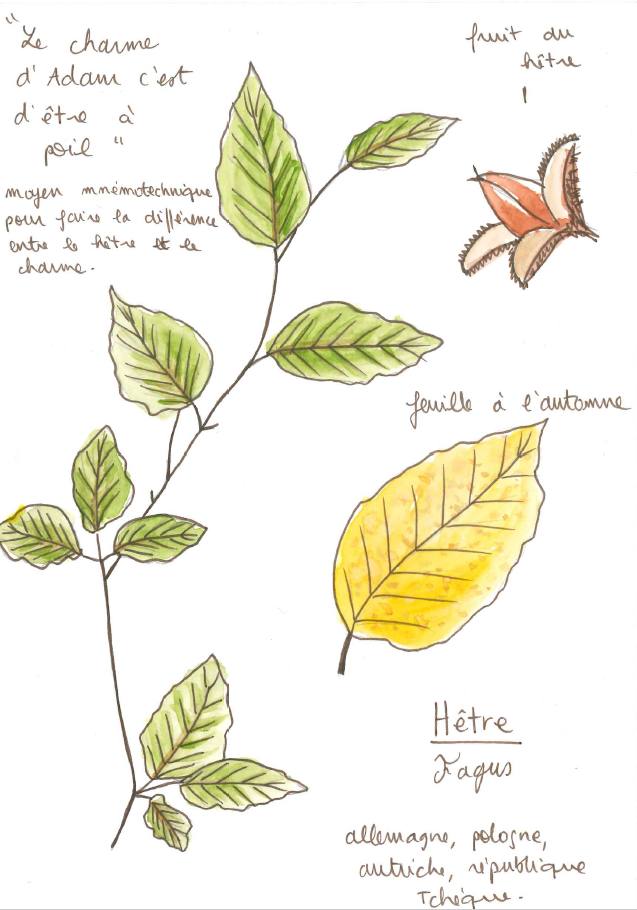 "Le charme
d'Adam c'est
d'être à
poil"
moyen mnémotechnique
pour faire la différence
entre le hêtre et le
charme.
fruit du
hêtre
feuille à l'automne
Hêtre
Fagus
allemagne, pologne,
autriche, république
Tchèque.